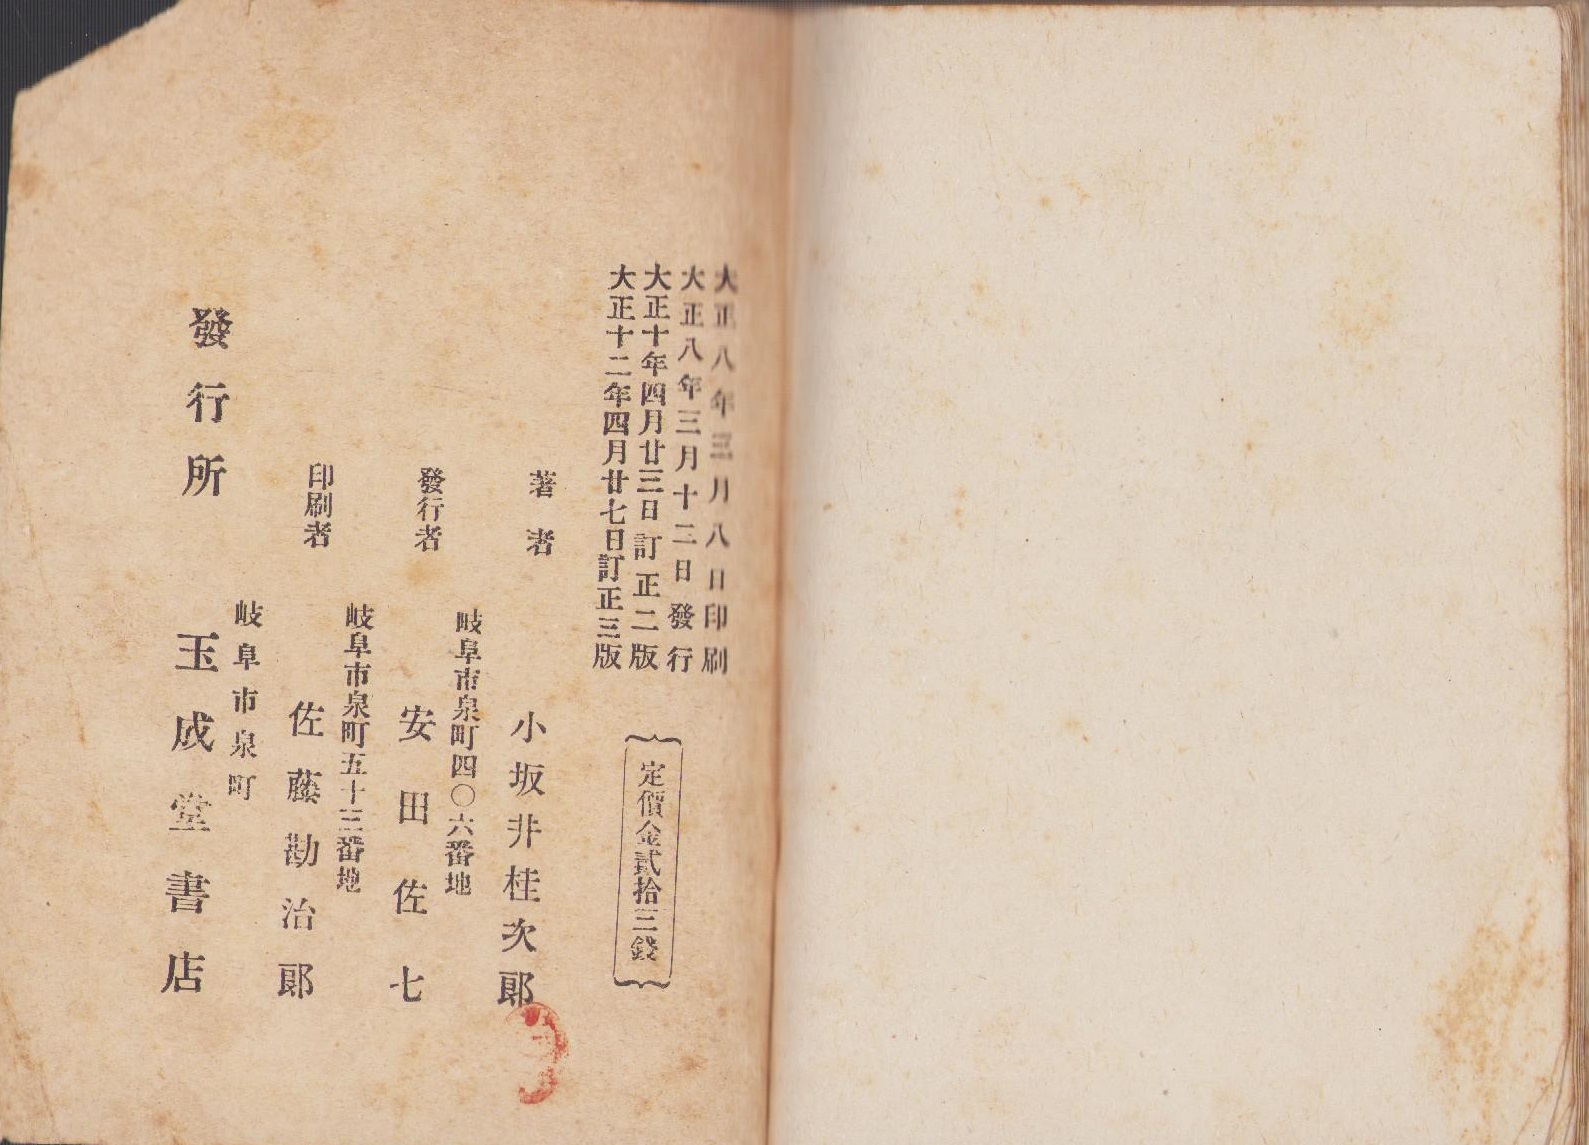 大正八年三月八日印刷
大正八年三月十二日發行
大正十年四月廿三日訂正二版
大正十二年四月廿七日訂正三版
定價金貳拾三錢
著者
小坂井桂次郎
岐阜市泉町四〇六番地
發行者
安田佐七
岐阜市泉町五十三番地
印刷者
佐藤勘治郎
岐阜市泉町
發行所
玉成堂書店